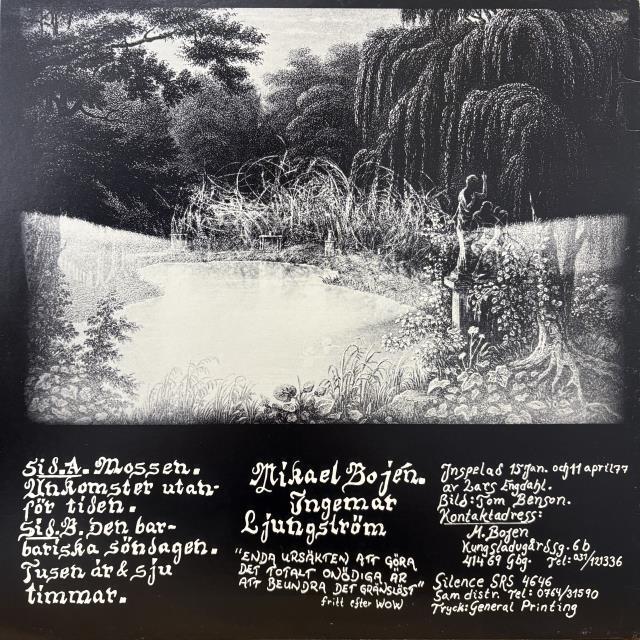 Sid.A. Mossen.
Ankomster utan-
för tiden.
Sid.B. Den bar-
bariska söndagen.
Tusen år & sju
timmar.
Mikael Bojen.
Ingemar
Ljungström
"ENDA URSÄKTEN ATT GÖRA
DET TOTALT ONÖDIGA ÄR
ATT BEUNDRA DET GRÄNSLÖST"
fritt efter WOW
Inspelad 15 jan. och 11 april 77
av Lars Engdahl.
Bild: Tom Benson.
Kontaktadress:
M. Bojen
Kungsladugårdsg. 6 b
414 69 Gbg. Tel: 031/121336
Silence SRS 4646
Sam distr. Tel: 0764/31590
Tryck: General Printing